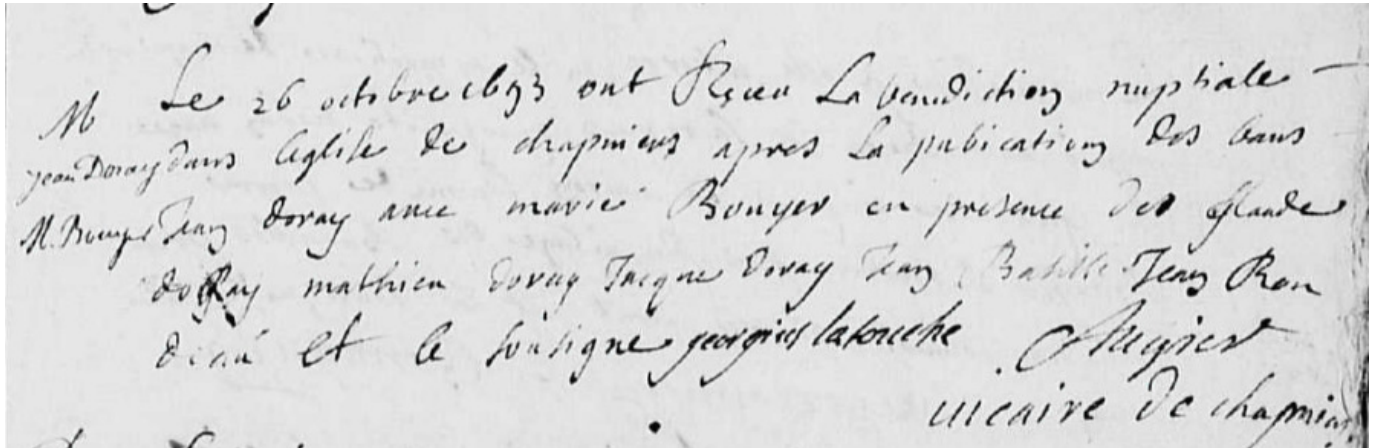 M
Jean Doray
M. Bouyer
Le 26 octobre 1693 ont Receu La benediction nuptiale
dans leglise de chapniers apres La pubication des bans
Jean doray avec marie Bouyer en presence de Glaude
doRay mathieu doray Jacque doray Jean Batille Jean Ron
deau et le sousigne georgius latouche Augier
vicaire de chapniers